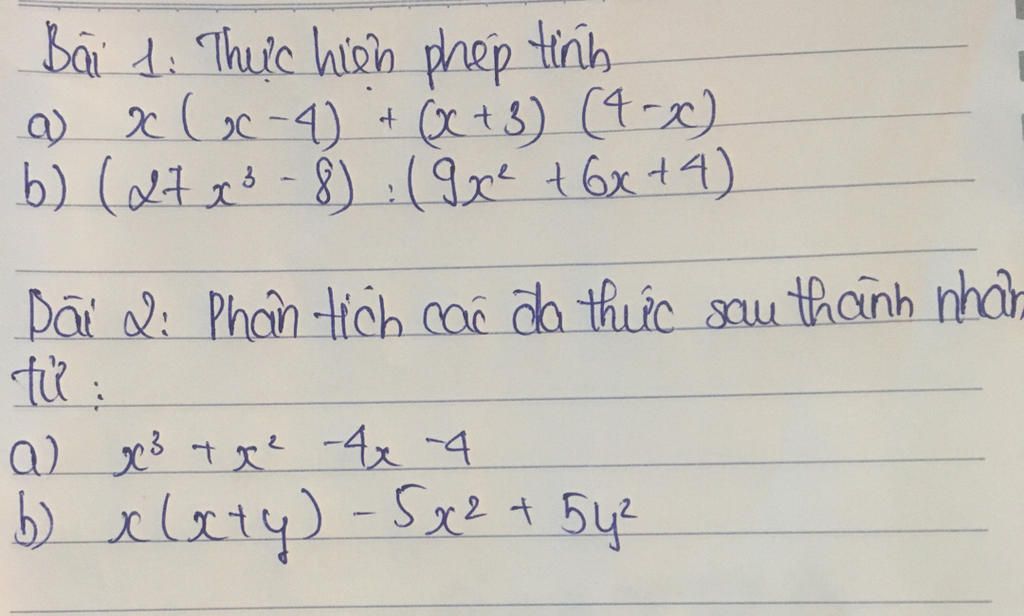 Bài 1: Thực hiện phép tính
a) x(x-4) + (x+3) (4-x)
b) (27x³ - 8) : (9x² + 6x + 4)
Bài 2: Phân tích các đa thức sau thành nhân
tử :
a) x³ + x² - 4x - 4
b) x(x+y) - 5x² + 5y²